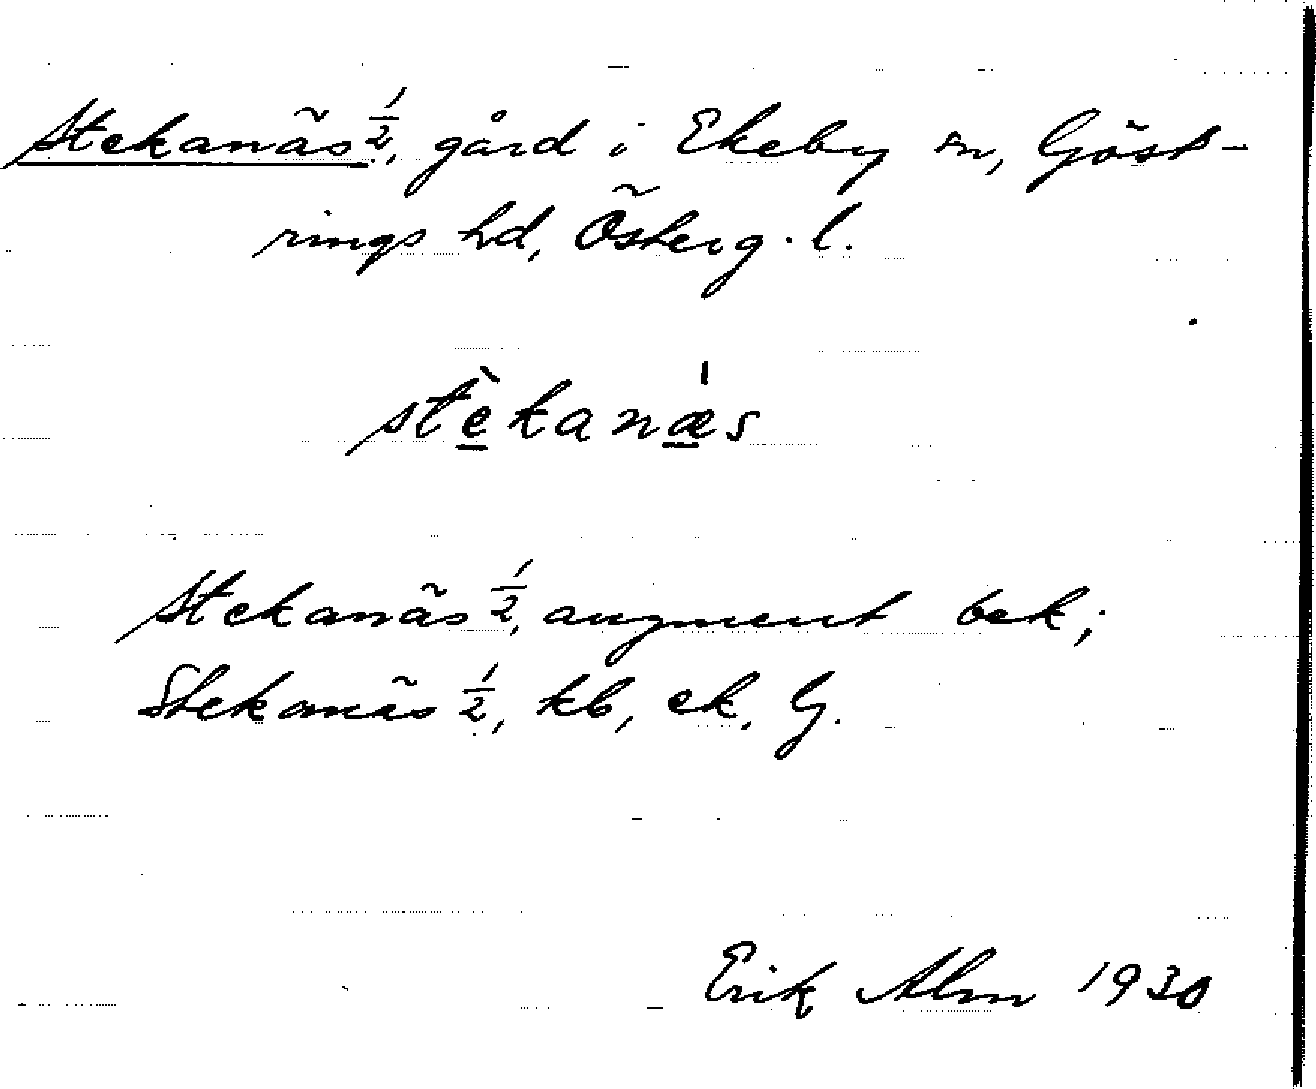 Stekanäs 1/2, gård i Ekeby sn, Göst-
rings hd, Österg. l.
stèkanæ̍s
Stekanäs 1/2, augment bek;
Stekanäs 1/2, kb, ek. G.
Erik Alm 1930